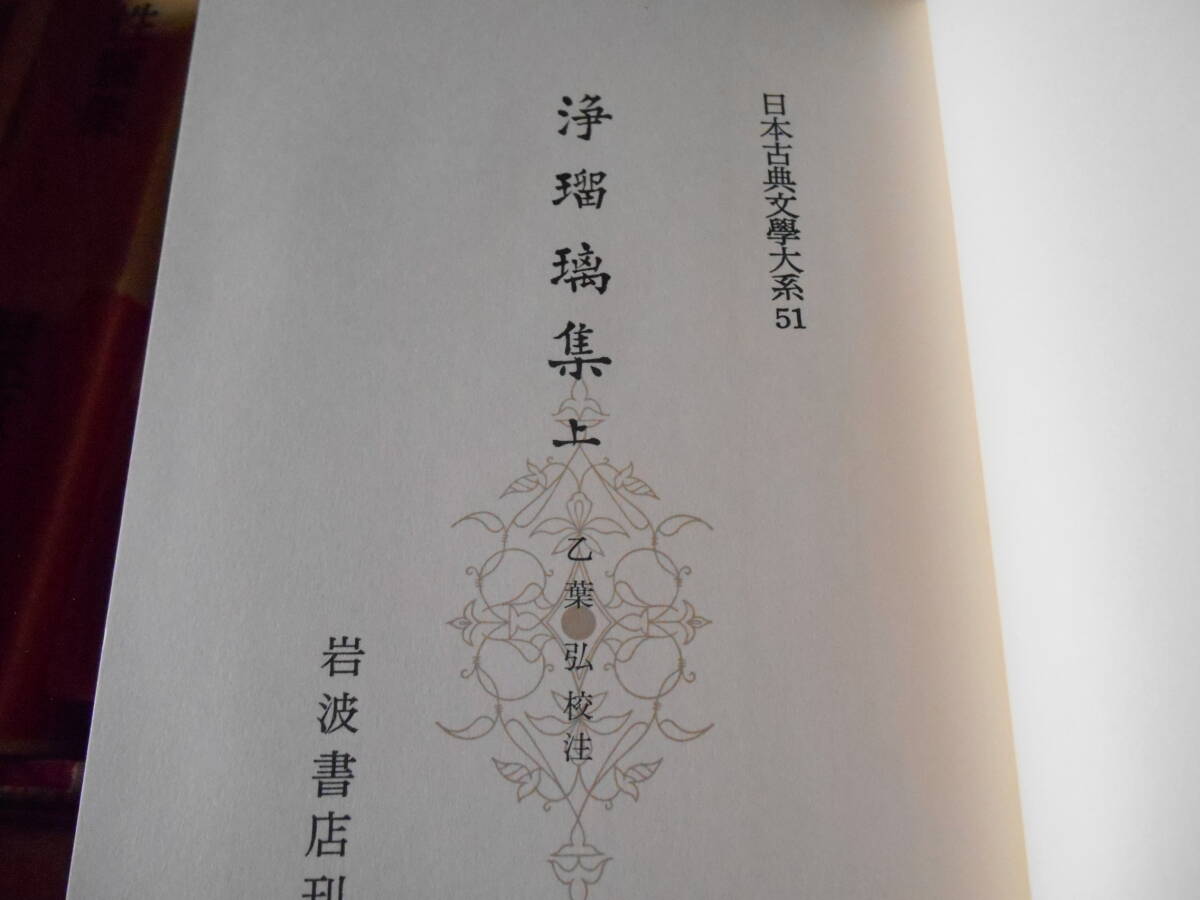 日本古典文學大系51
浄瑠璃集 上
乙葉弘校注
岩波書店刊